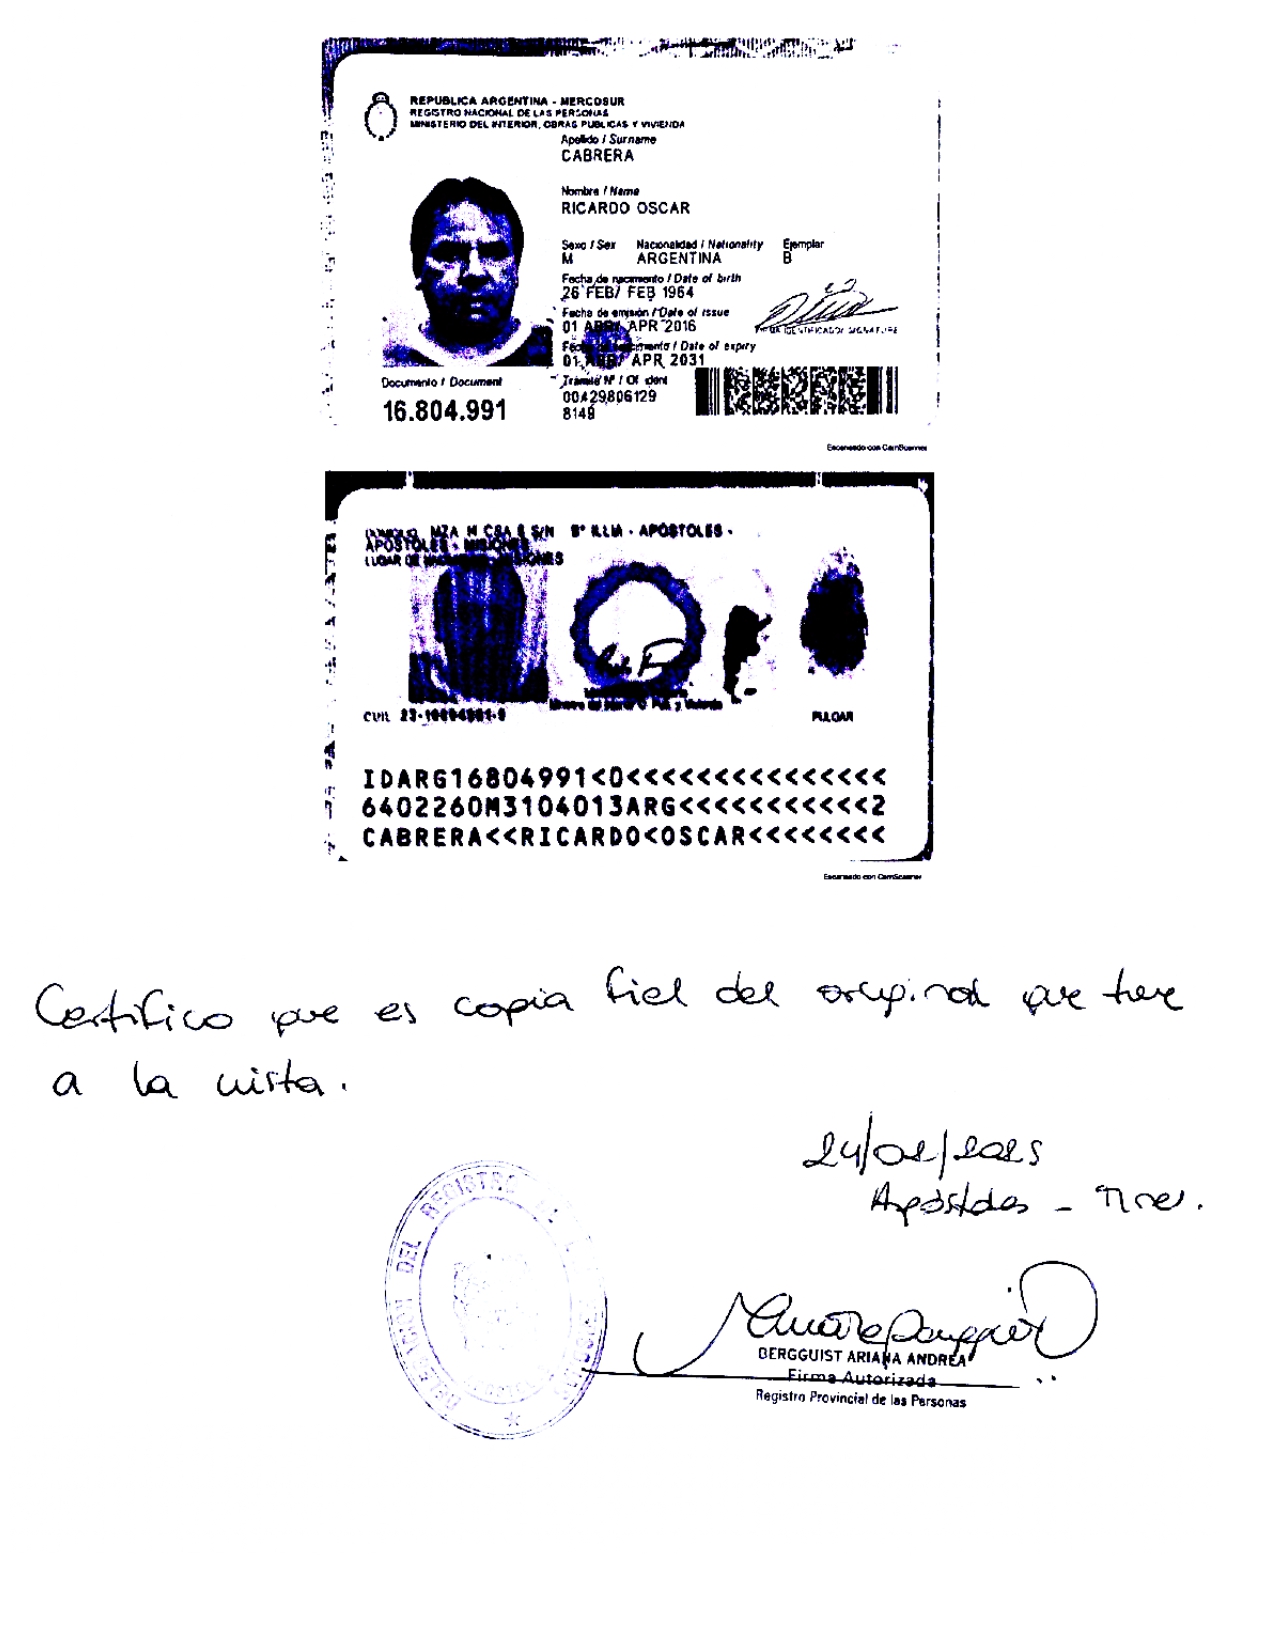 REPUBLICA ARGENTINA - MERCOSUR
REGISTRO NACIONAL DE LAS PERSONAS
MINISTERIO DEL INTERIOR, OBRAS PUBLICAS Y VIVIENDA
Apellido / Surname
CABRERA
Nombre / Name
RICARDO OSCAR
Sexo / Sex Nacionalidad / Nationality Ejemplar
M ARGENTINA B
Fecha de nacimiento / Date of birth
26 FEB/ FEB 1964
Fecha de emisión / Date of issue
01 ABR/ APR 2016
/ Date of expiry
01 ABR/ APR 2031
Documento / Document
16.804.991
Trámite Nº / Of. ident
00429806129
8148
Escaneado con CamScanner
DOMICILIO MZA M S/N Bº ILLIA - APOSTOLES -
APOSTOLES - MISIONES
LUGAR DE
CUIL 23-
PULGAR
IDARG16804991<0<<<<<<<<<<<<<<<
6402260M3104013ARG<<<<<<<<<<<2
CABRERA<<RICARDO<OSCAR<<<<<<<<
Escaneado con CamScanner
Certifico que es copia fiel del original que tuve
a la vista.
24/02/2025
Apóstoles - Mnes.
DELEGACION DEL REGISTRO
BERGGUIST ARIANA ANDREA
Firma Autorizada
Registro Provincial de las Personas